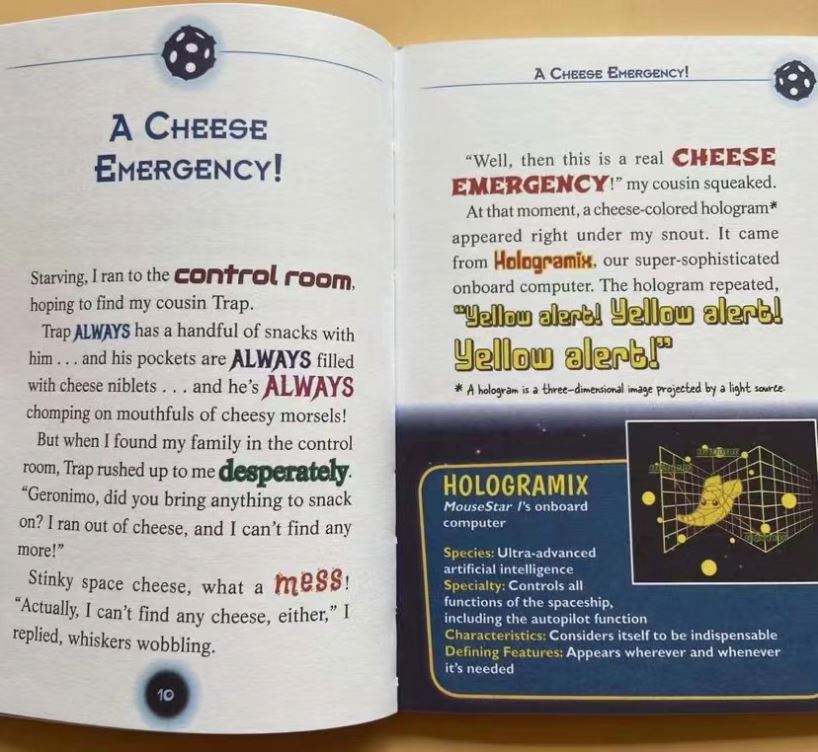 A CHEESE
EMERGENCY!
Starving, I ran to the control room,
hoping to find my cousin Trap.
Trap ALWAYS has a handful of snacks with
him . . . and his pockets are ALWAYS filled
with cheese niblets . . . and he's ALWAYS
chomping on mouthfuls of cheesy morsels!
But when I found my family in the control
room, Trap rushed up to me desperately.
"Geronimo, did you bring anything to snack
on? I ran out of cheese, and I can't find any
more!"
Stinky space cheese, what a mess!
"Actually, I can't find any cheese, either," I
replied, whiskers wobbling.
10
A CHEESE EMERGENCY!
"Well, then this is a real CHEESE
EMERGENCY!" my cousin squeaked.
At that moment, a cheese-colored hologram*
appeared right under my snout. It came
from Hologramix, our super-sophisticated
onboard computer. The hologram repeated,
"Yellow alert! Yellow alert!
Yellow alert!"
* A hologram is a three-dimensional image projected by a light source.
HOLOGRAMIX
MouseStar 1's onboard
computer
Species: Ultra-advanced
artificial intelligence
Specialty: Controls all
functions of the spaceship,
including the autopilot function
Characteristics: Considers itself to be indispensable
Defining Features: Appears wherever and whenever
it's needed